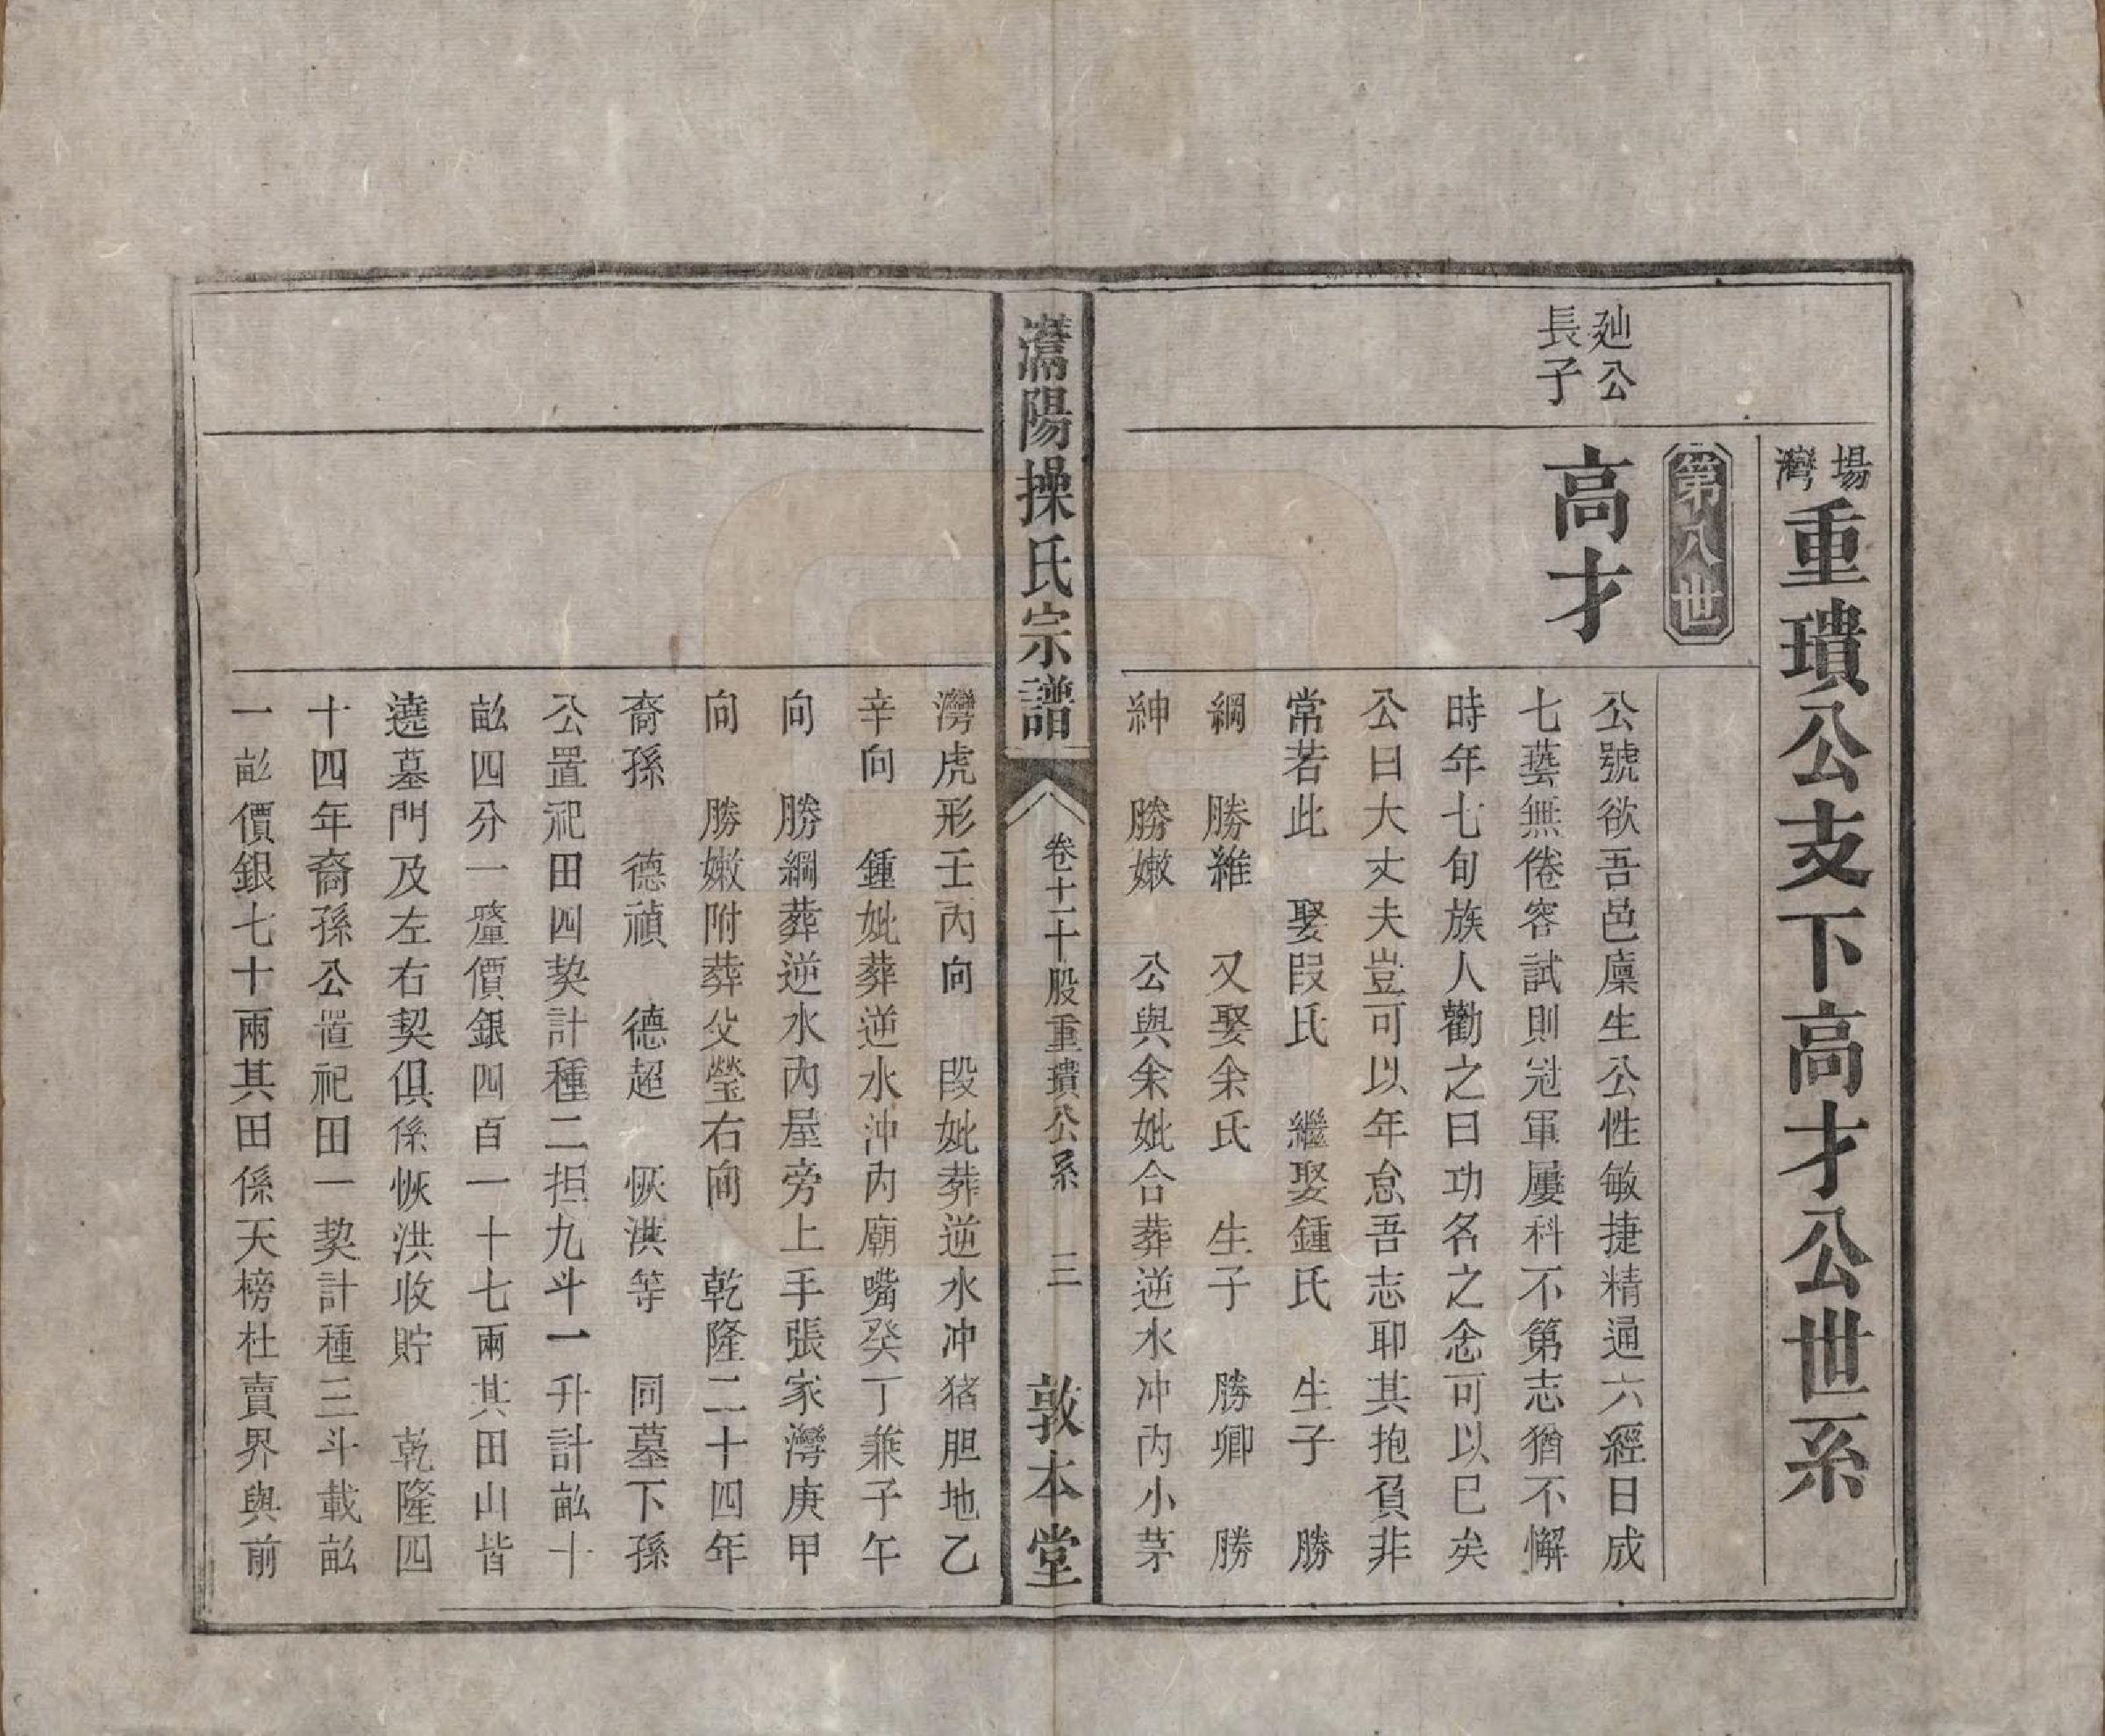 場灣重璝公支下高才公世系
第八世
廵公
長子
高才
公號欲吾邑廩生公性敏捷精通六經日成
七藝無倦容試則冠軍屢科不第志猶不懈
時年七旬族人勸之曰功名之念可以已矣
公曰大丈夫豈可以年怠吾志耶其抱負非
常若此　娶段氏　繼娶鍾氏　生子　勝
綱　勝維　又娶余氏　生子　勝卿　勝
紳　勝嫩　公與余妣合葬逆水冲內小茅
灣虎形壬丙向　段妣葬逆水冲猪胆地乙
辛向　鍾妣葬逆水沖內廟嘴癸丁兼子午
向　勝綱葬逆水內屋旁上手張家灣庚甲
向　勝嫩附葬父塋右向　乾隆二十四年
裔孫　德禎　德超　恢洪等　同墓下孫
公置祀田四契計種二担九斗一升計畝十
畝四分一釐價銀四百一十七兩其田山皆
遶墓門及左右契俱係恢洪收貯　乾隆四
十四年裔孫公置祀田一契計種三斗載畝
一畝價銀七十兩其田係天榜杜賣界與前
灊陽操氏宗譜
卷十二十股重璝公系
三
敦本堂